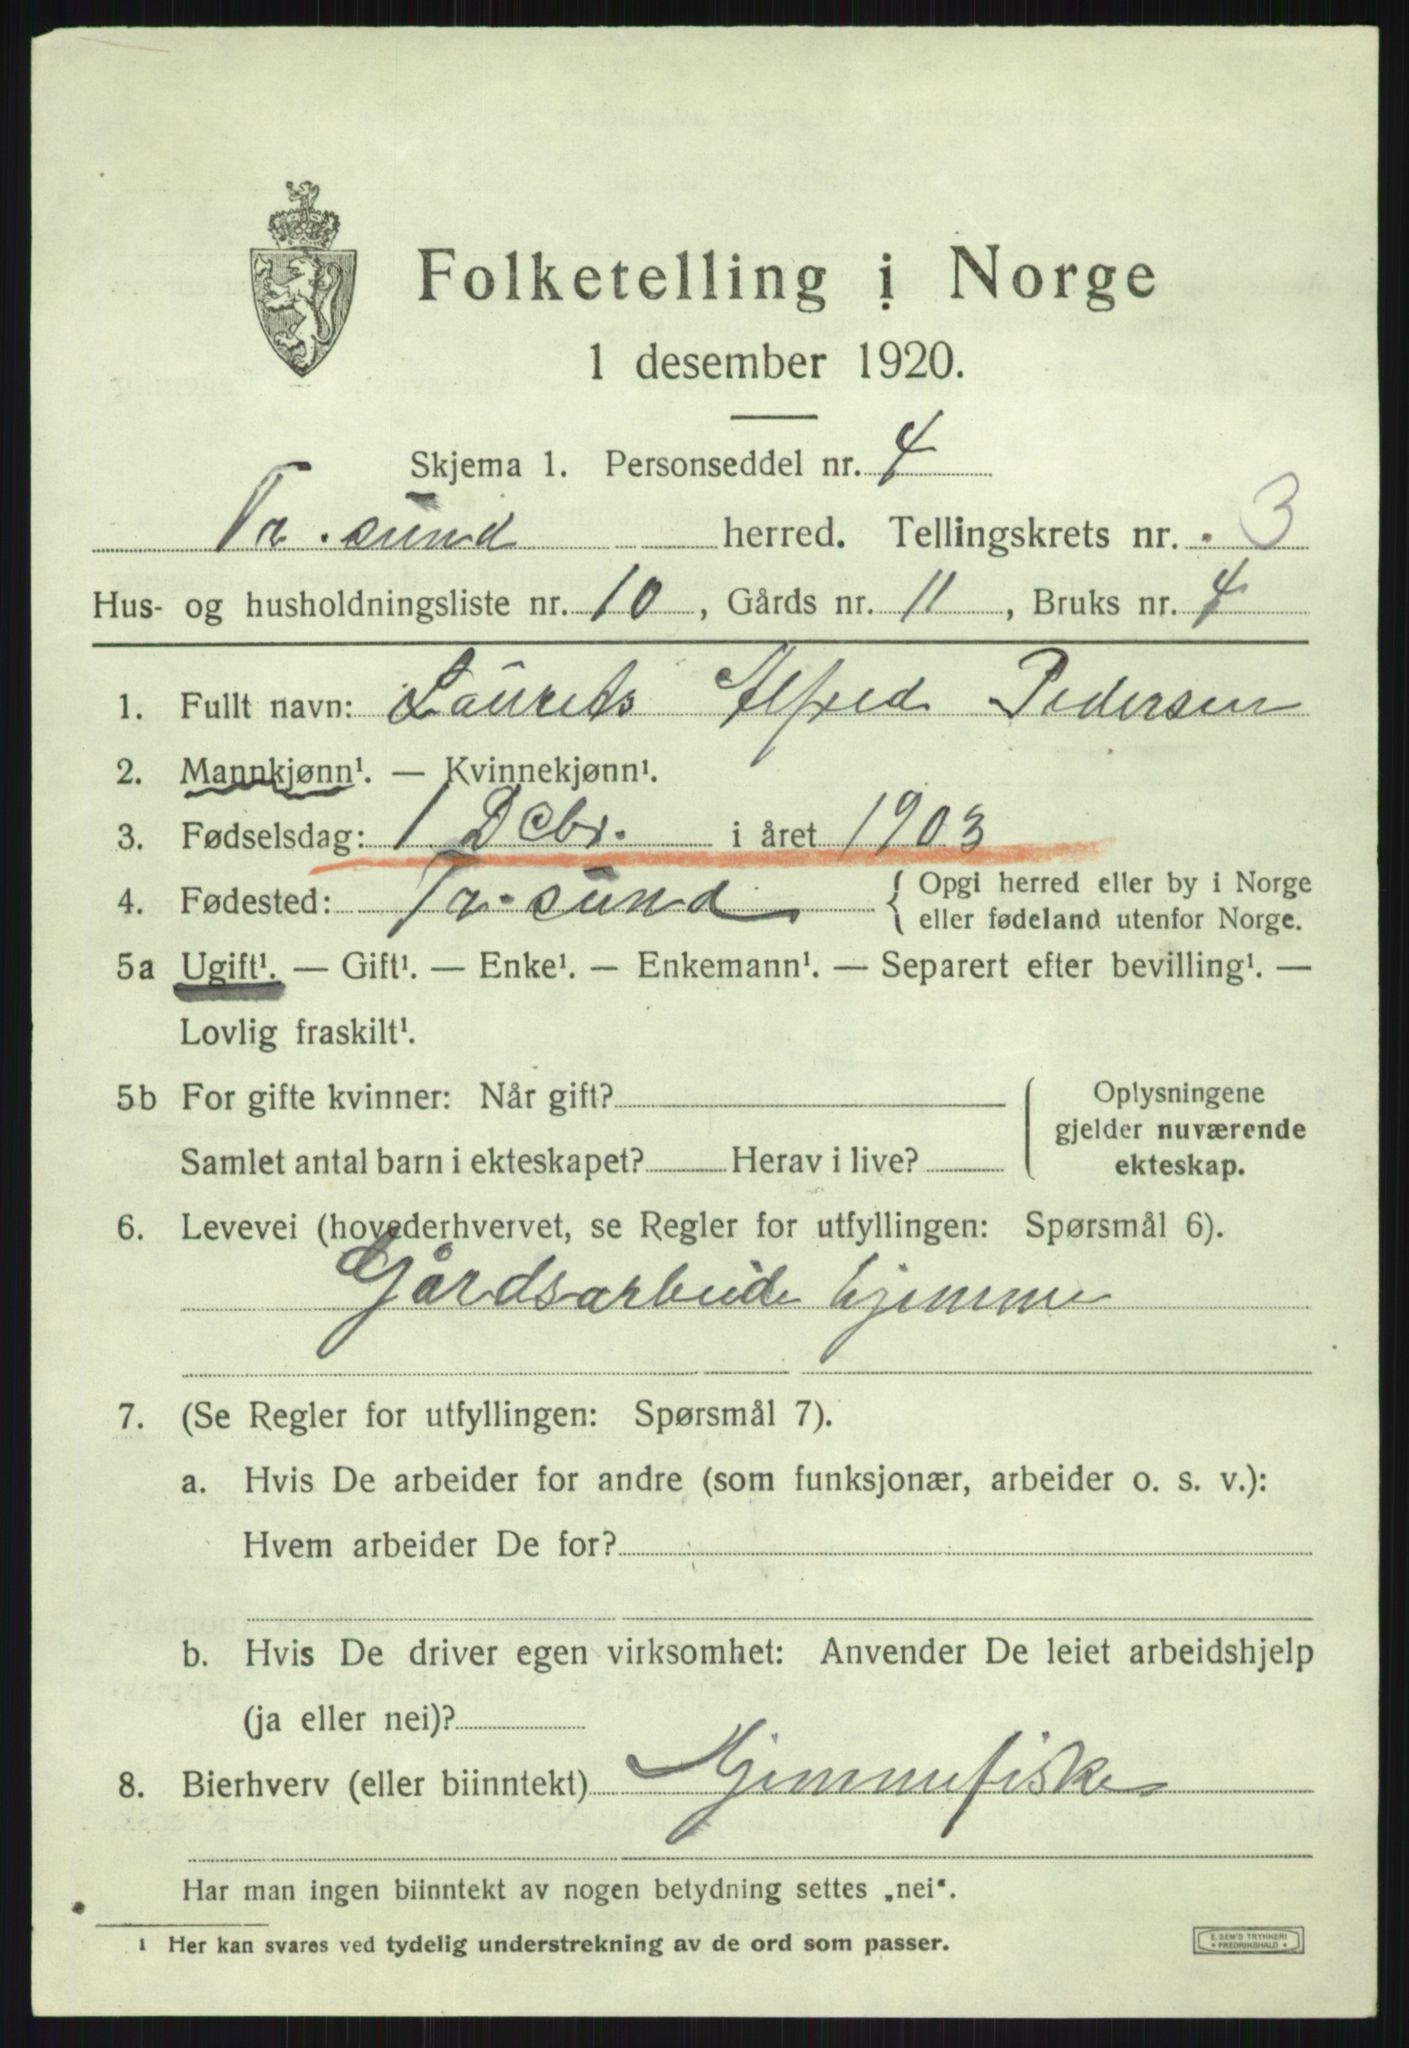 Folketelling i Norge
1 desember 1920.
Skjema 1. Personseddel nr. 4
Tr. sund herred. Tellingskrets nr. 3
Hus- og husholdningsliste nr. 10, Gårds nr. 11, Bruks nr. 4
1. Fullt navn: Laurits Alfred Pedersen
2. Mannkjønn¹. — Kvinnekjønn¹.
3. Fødselsdag: 1 Dcbr. i året 1903
4. Fødested: Tr. sund { Opgi herred eller by i Norge
eller fødeland utenfor Norge.
5a Ugift¹. — Gift¹. — Enke¹. — Enkemann¹. — Separert efter bevilling¹. —
Lovlig fraskilt¹.
5b For gifte kvinner: Når gift?
Samlet antal barn i ekteskapet? Herav i live?
Oplysningene
gjelder nuværende
ekteskap.
6. Levevei (hovederhvervet, se Regler for utfyllingen: Spørsmål 6).
Gårdsarbeide hjemme
7. (Se Regler for utfyllingen: Spørsmål 7).
a. Hvis De arbeider for andre (som funksjonær, arbeider o. s. v.):
Hvem arbeider De for?
b. Hvis De driver egen virksomhet: Anvender De leiet arbeidshjelp
(ja eller nei)?
8. Bierhverv (eller biinntekt) Hjemmefiske
Har man ingen biinntekt av nogen betydning settes „nei“.
¹ Her kan svares ved tydelig understrekning av de ord som passer.
E. SEM'S TRYKKERI
• FREDRIKSHALD •